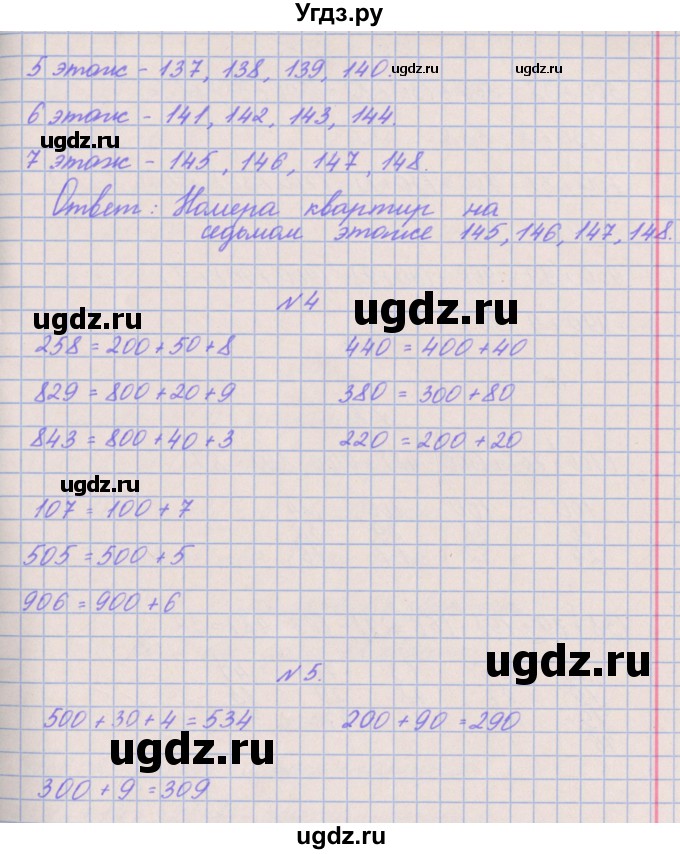 Угдз.ру
5 этаж - 137, 138, 139, 140.
ugdz.ru ugdz.ru
6 этаж - 141, 142, 143, 144.
ugdz.ru
7 этаж - 145, 146, 147, 148.
Ответ: Номера квартир на
седьмом этаже 145, 146, 147, 148.
№4
ugdz.ru
ugdz.ru
258 = 200 + 50 + 8 440 = 400 + 40
829 = 800 + 20 + 9 380 = 300 + 80
843 = 800 + 40 + 3 220 = 200 + 20
ugdz.ru
107 = 100 + 7
505 = 500 + 5
906 = 900 + 6
ugdz.ru
№5.
500 + 30 + 4 = 534 200 + 90 = 290
ugdz.ru
300 + 9 = 309
ugdz.ru